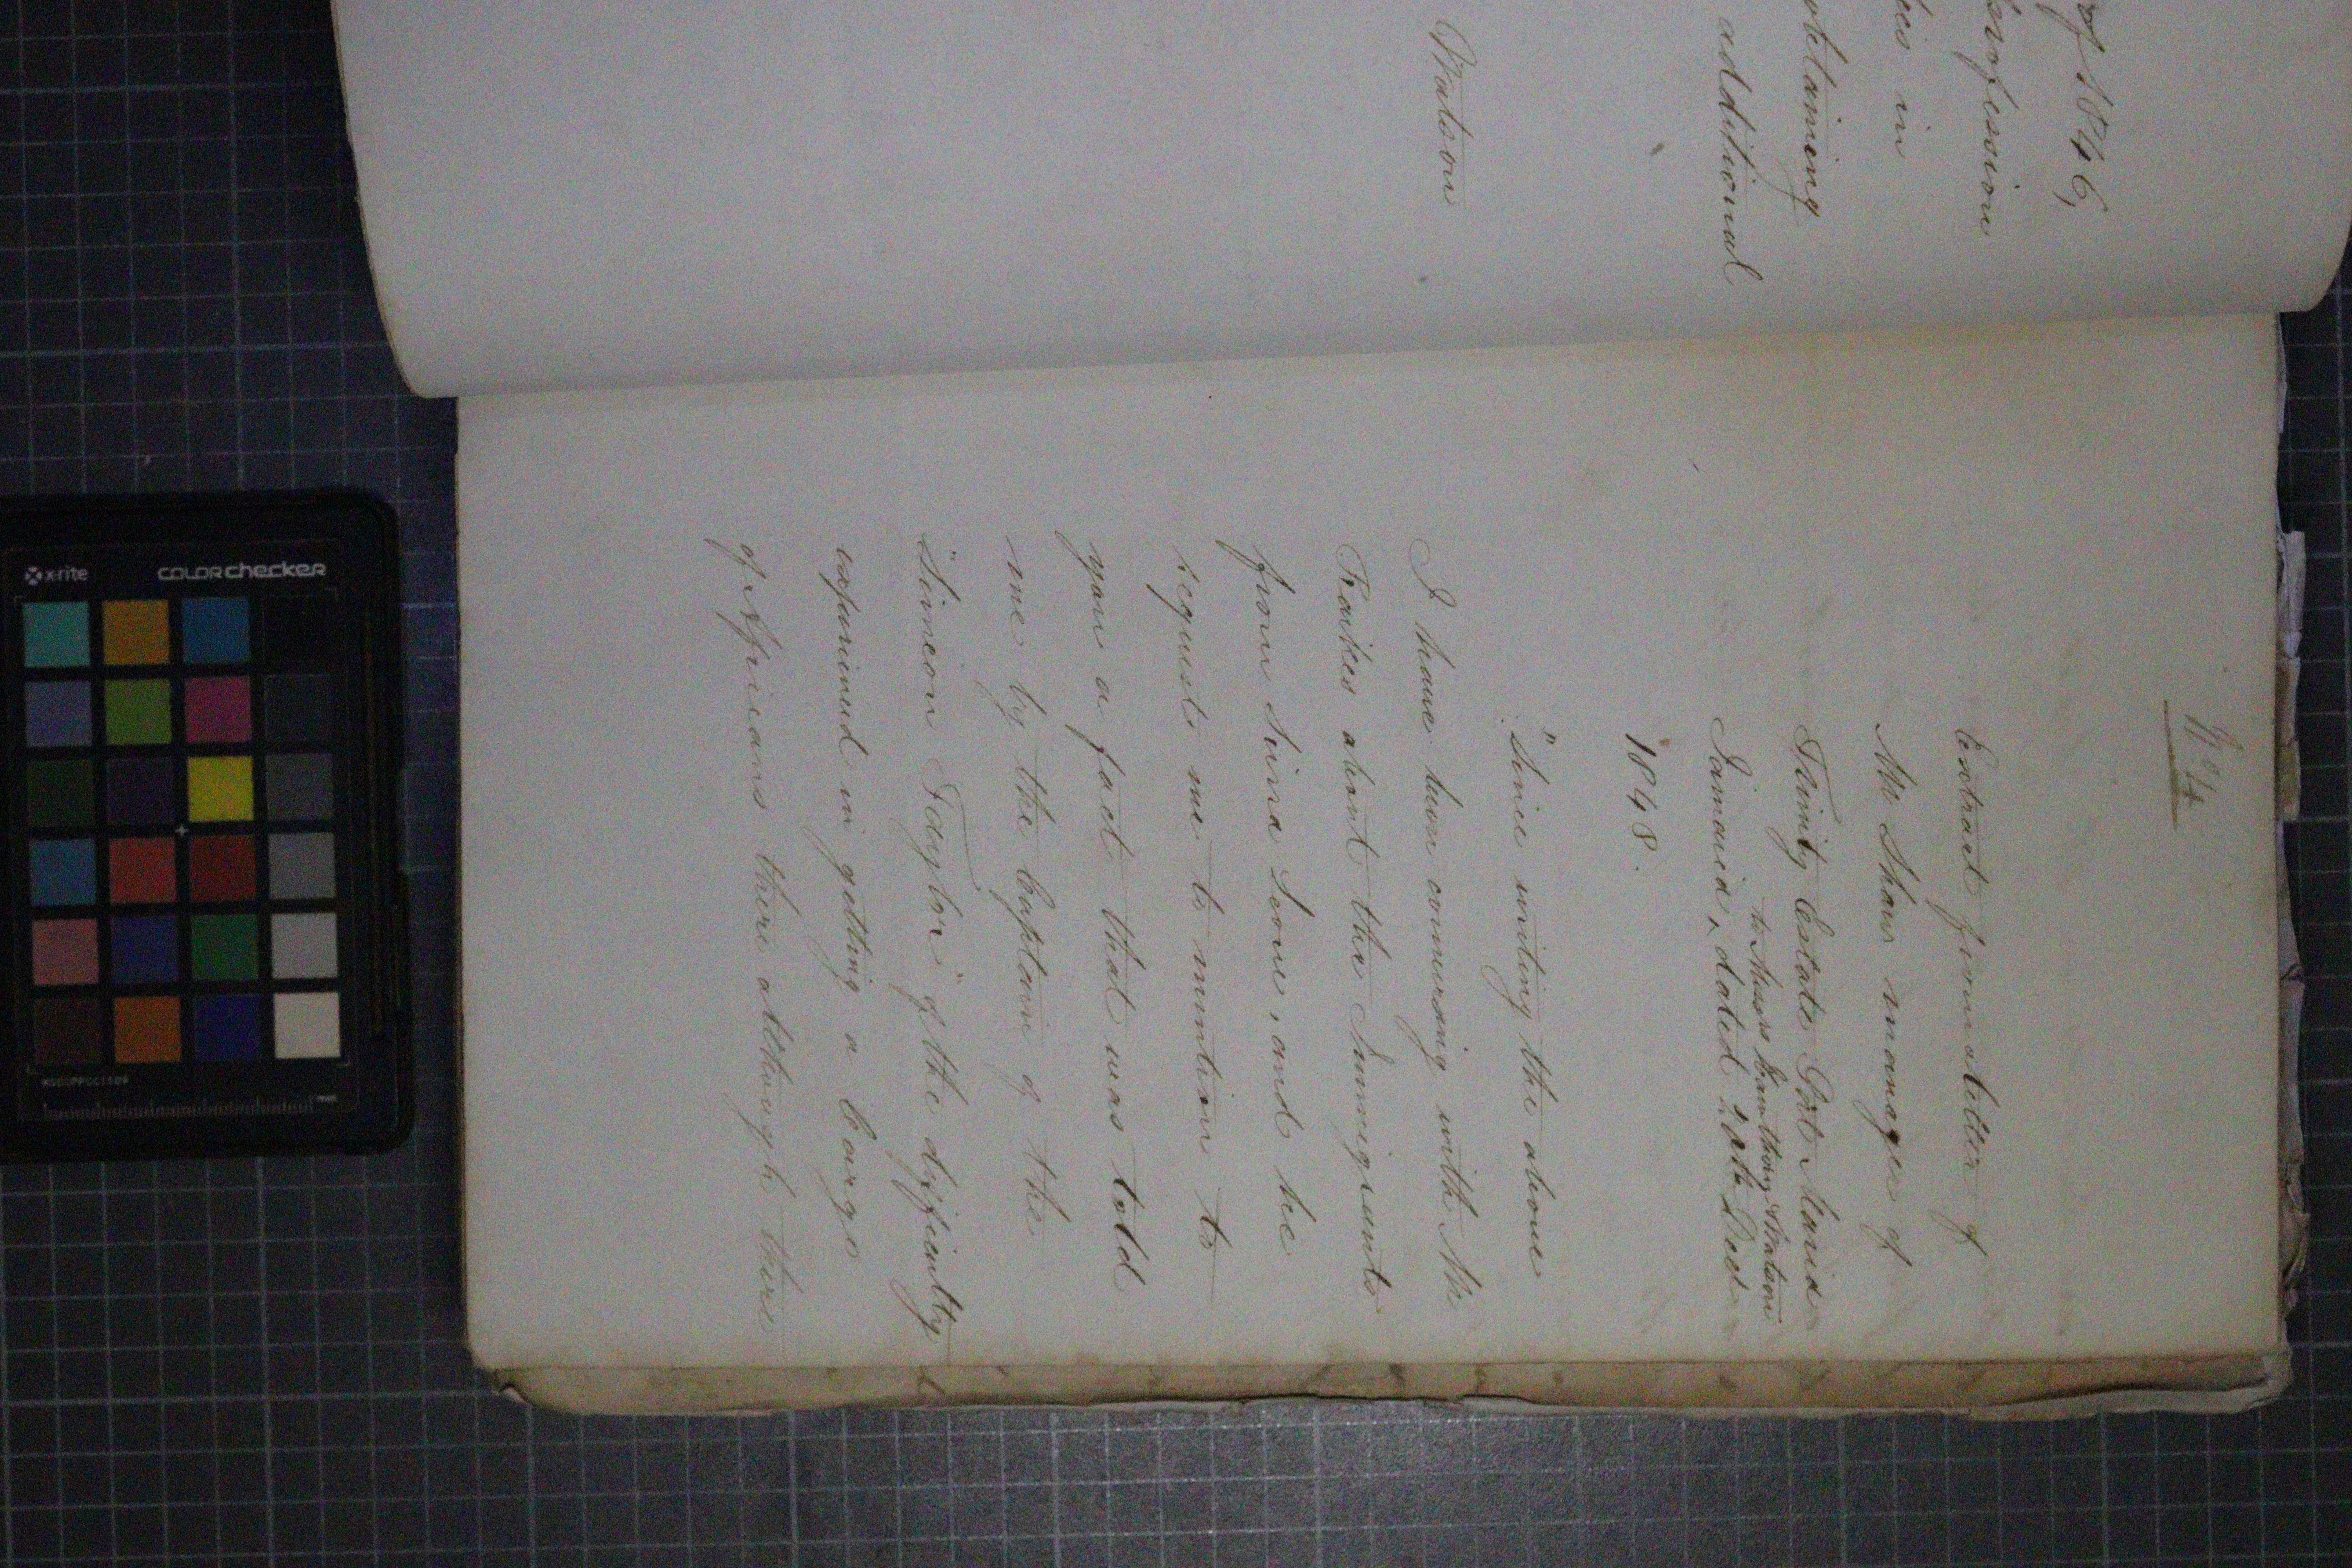 of 1846,
profession
ies in
obtaining
additional
Watson
No 4
Extract from a letter of
Mr Shaw manager of
Trinity Estate Port Maria
to Messrs Hawthorn & Watson
Jamaica, dated 20th Decr
1848.
"Since writing the above
I have been conversing with Mr
Raikes about the Immigrants
from Sierra Leone, and he
requests me to mention to
you a fact that was told
me by the Captain of the
"Simeon Taylor" of the difficulty
experienced in getting a Cargo
of Africans there although there
x-rite
colorchecker
mm